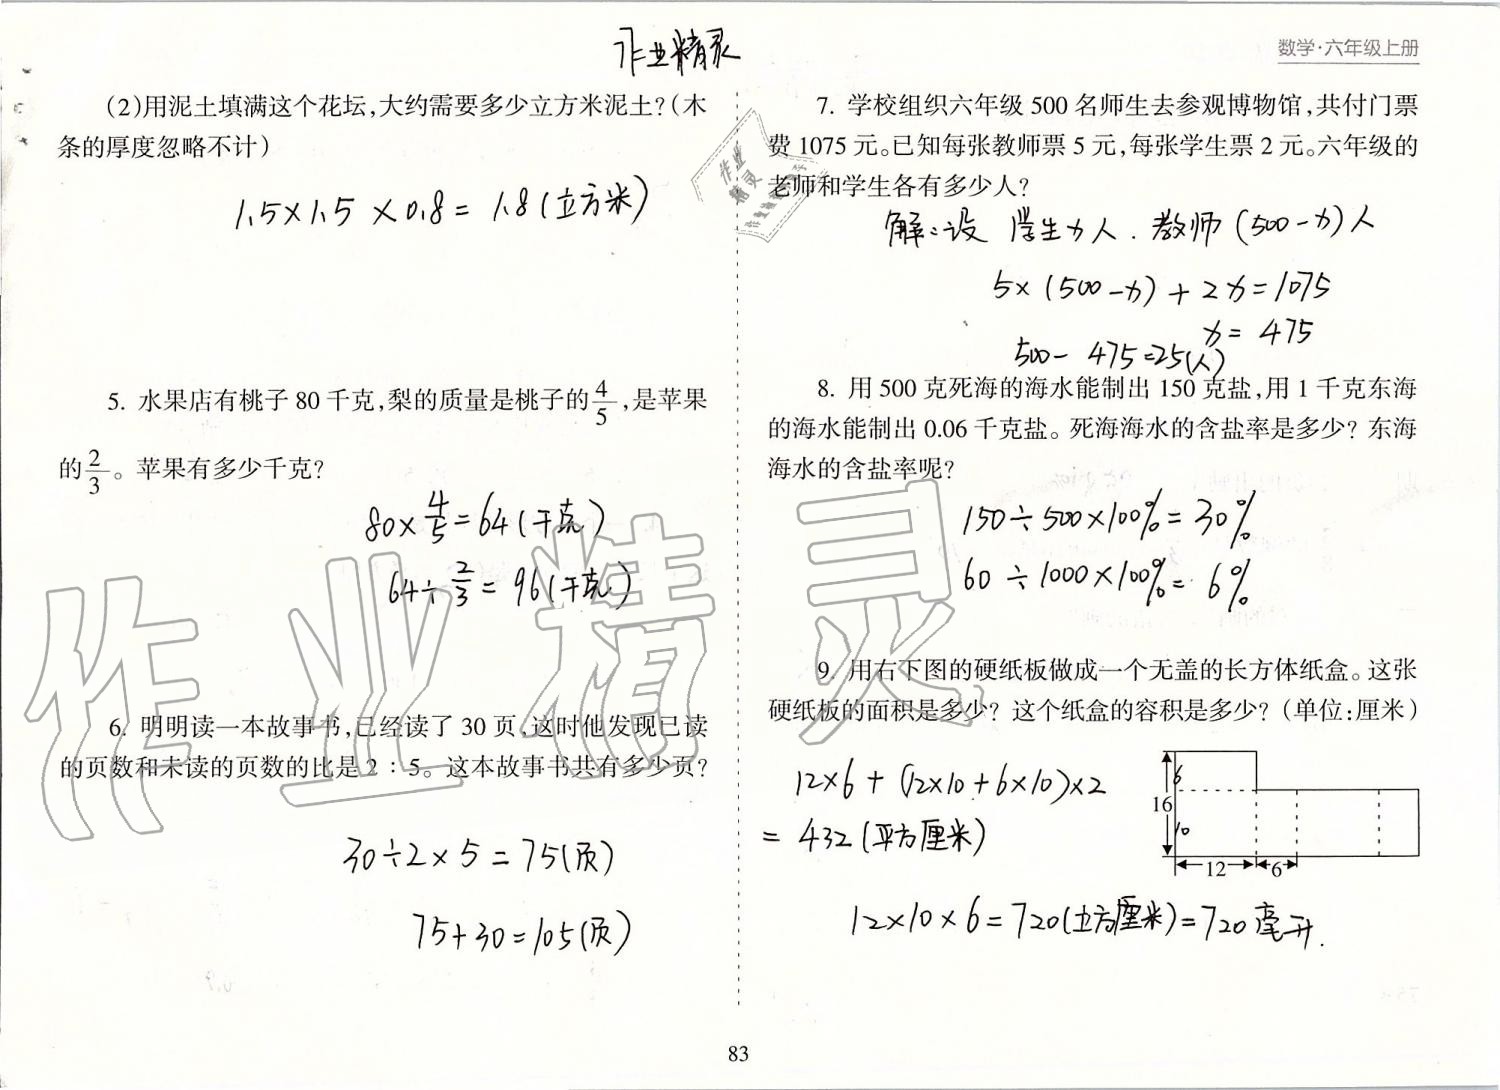 作业精灵
数学·六年级上册
(2)用泥土填满这个花坛,大约需要多少立方米泥土?(木
条的厚度忽略不计)
1.5×1.5×0.8=1.8(立方米)
5. 水果店有桃子80千克,梨的质量是桃子的4/5,是苹果
的2/3。苹果有多少千克?
80×4/5=64(千克)
64÷2/3=96(千克)
6. 明明读一本故事书,已经读了30页,这时他发现已读
的页数和未读的页数的比是2:5。这本故事书共有多少页?
30÷2×5=75(页)
75+30=105(页)
7. 学校组织六年级500名师生去参观博物馆,共付门票
费1075元。已知每张教师票5元,每张学生票2元。六年级的
老师和学生各有多少人?
解:设学生为x人.教师(500-x)人
5×(500-x)+2x=1075
x=475
500-475=25(人)
8. 用500克死海的海水能制出150克盐,用1千克东海
的海水能制出0.06千克盐。死海海水的含盐率是多少?东海
海水的含盐率呢?
150÷500×100%=30%
60÷1000×100%=6%
9. 用右下图的硬纸板做成一个无盖的长方体纸盒。这张
硬纸板的面积是多少?这个纸盒的容积是多少?(单位:厘米)
12×6+(12×10+6×10)×2
=432(平方厘米)
12×10×6=720(立方厘米)=720毫升.
6
16
10
12
6
作业精灵
作业
精灵
83